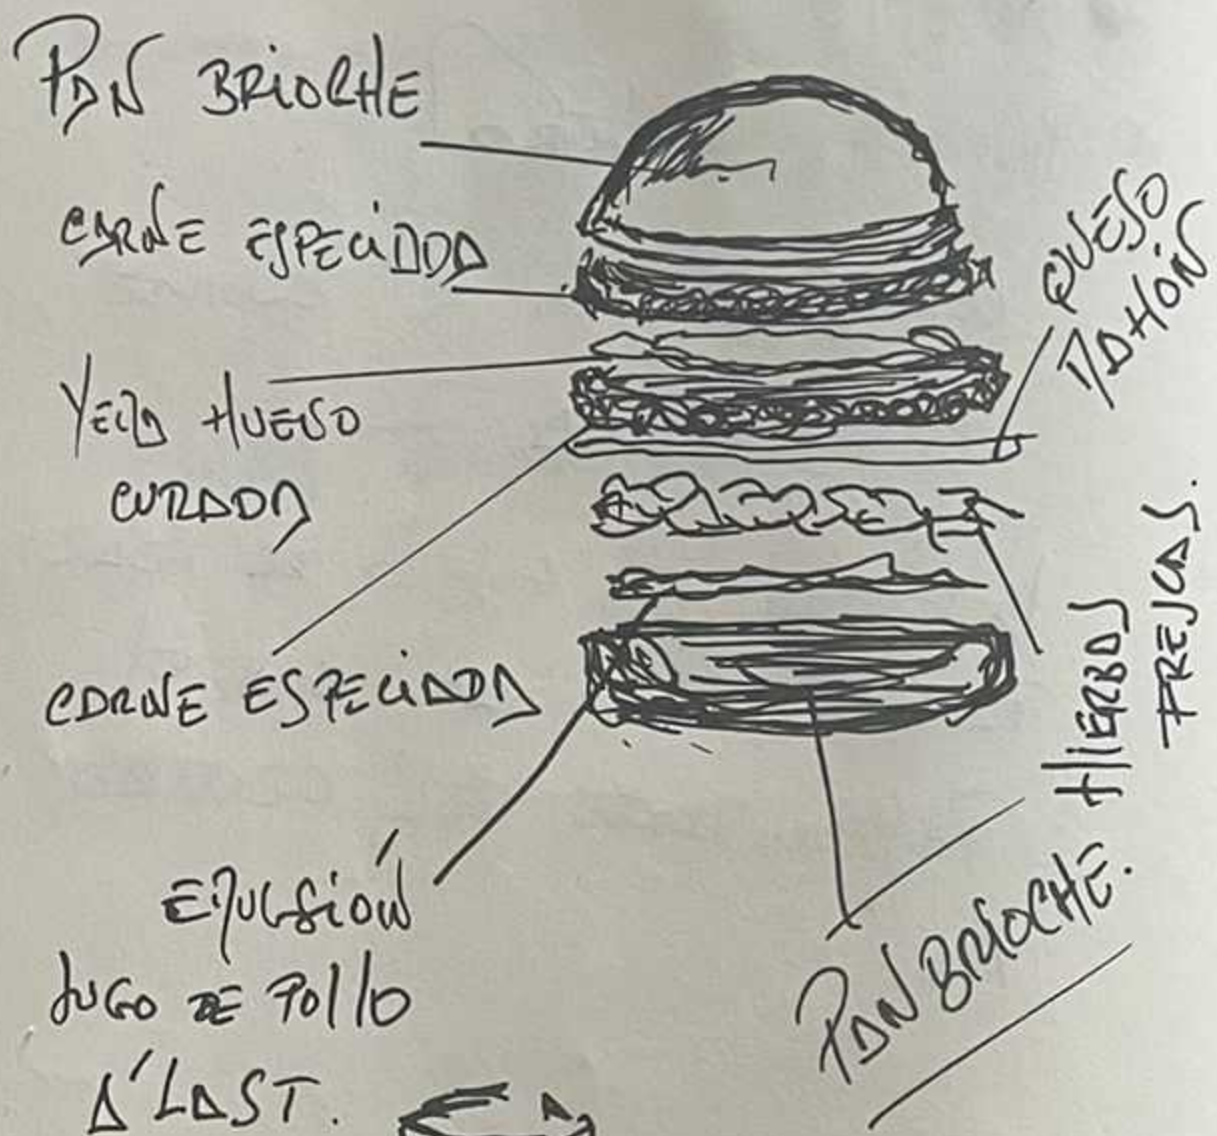 PAN BRIOCHE
CARNE ESPECIADA
YEMA HUEVO
CURADA
CARNE ESPECIADA
EMULSIÓN
JUGO DE POLLO
A'LAST.
QUESO
MAHÓN
HIERBAS
FRESCAS.
PAN BRIOCHE.